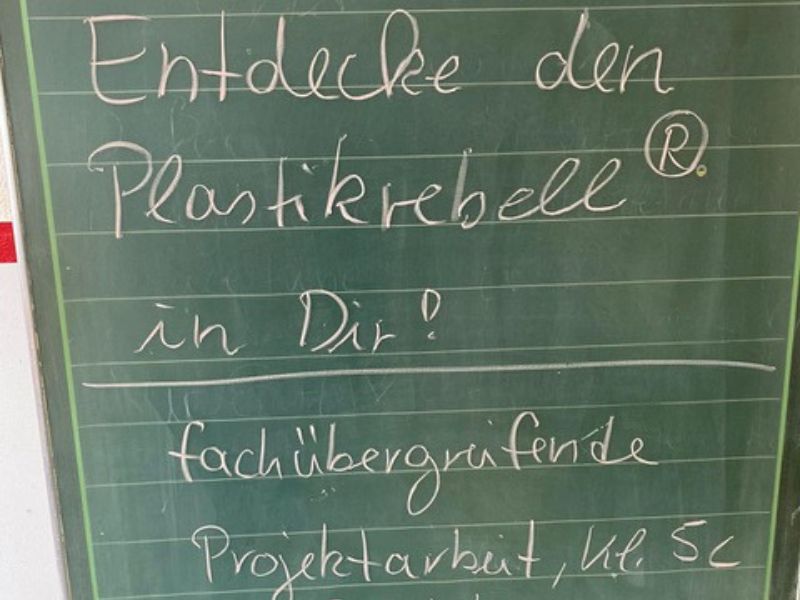 Entdecke den
Plastikrebell®
in Dir!
fachübergreifende
Projektarbeit, Kl. 5c